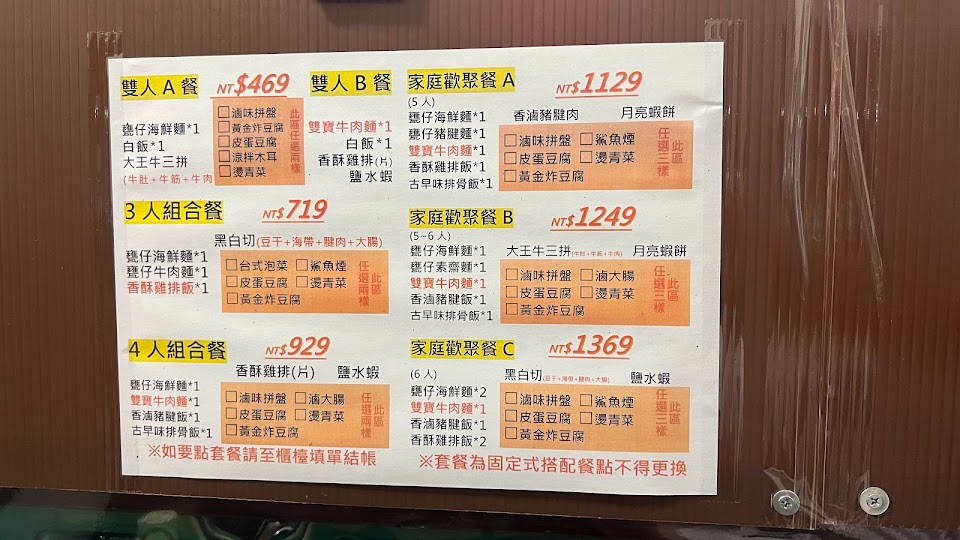 雙人A餐 NT$469 雙人B餐
甕仔海鮮麵*1
白飯*1
大王牛三拼
(牛肚+牛筋+牛肉
□滷味拼盤
□黃金炸豆腐
□皮蛋豆腐
□涼拌木耳
□燙青菜
此區任選兩樣
雙寶牛肉麵*1
白飯*1
香酥雞排(片)
鹽水蝦
3人組合餐 NT$719
黑白切(豆干+海帶+腱肉+大腸)
甕仔海鮮麵*1
甕仔牛肉麵*1
香酥雞排飯*1
□台式泡菜 □鯊魚煙
□皮蛋豆腐 □燙青菜
□黃金炸豆腐
此區任選兩樣
4人組合餐 NT$929
香酥雞排(片) 鹽水蝦
甕仔海鮮麵*1
雙寶牛肉麵*1
香滷豬腱飯*1
古早味排骨飯*1
□滷味拼盤 □滷大腸
□皮蛋豆腐 □燙青菜
□黃金炸豆腐
此區任選兩樣
家庭歡聚餐A NT$1129
(5人)
香滷豬腱肉 月亮蝦餅
甕仔海鮮麵*1
甕仔豬腱麵*1
雙寶牛肉麵*1
香酥雞排飯*1
古早味排骨飯*1
□滷味拼盤 □鯊魚煙
□皮蛋豆腐 □燙青菜
□黃金炸豆腐
此區任選三樣
家庭歡聚餐B NT$1249
(5~6人)
大王牛三拼(牛肚+牛筋+牛肉) 月亮蝦餅
甕仔海鮮麵*1
甕仔素齋麵*1
雙寶牛肉麵*1
香滷豬腱飯*1
古早味排骨飯*1
□滷味拼盤 □滷大腸
□皮蛋豆腐 □燙青菜
□黃金炸豆腐
此區任選三樣
家庭歡聚餐C NT$1369
(6人)
黑白切(豆干+海帶+腱肉+大腸) 鹽水蝦
甕仔海鮮麵*2
雙寶牛肉麵*1
香滷豬腱飯*1
香酥雞排飯*2
□滷味拼盤 □鯊魚煙
□皮蛋豆腐 □燙青菜
□黃金炸豆腐
此區任選三樣
※如要點套餐請至櫃檯填單結帳
※套餐為固定式搭配餐點不得更換